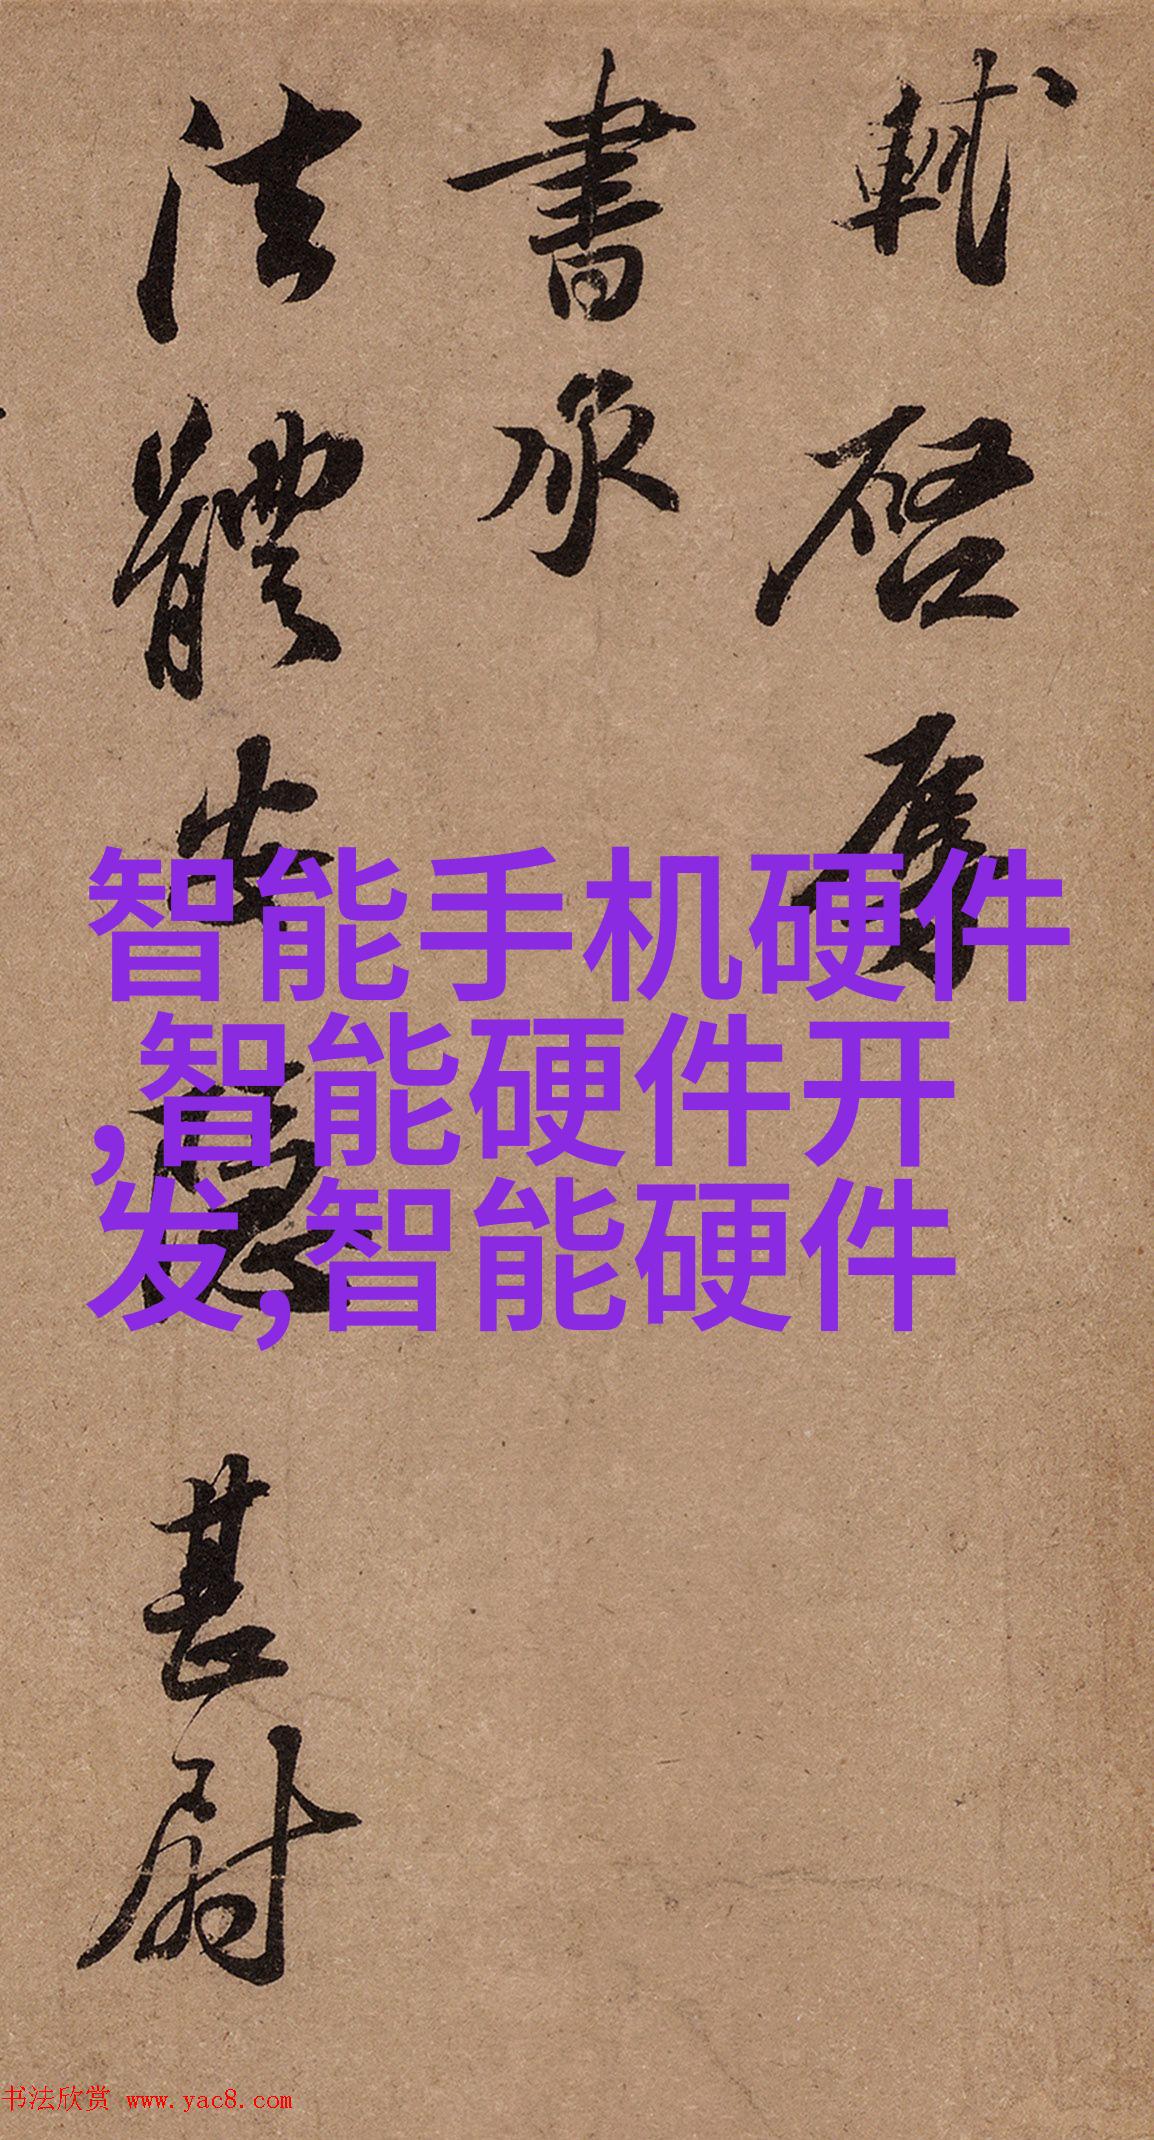 軾啓辱
書承
法體安隱甚尉
智能手机硬件
,智能硬件开
发,智能硬件
书法欣赏 www.yac8.com